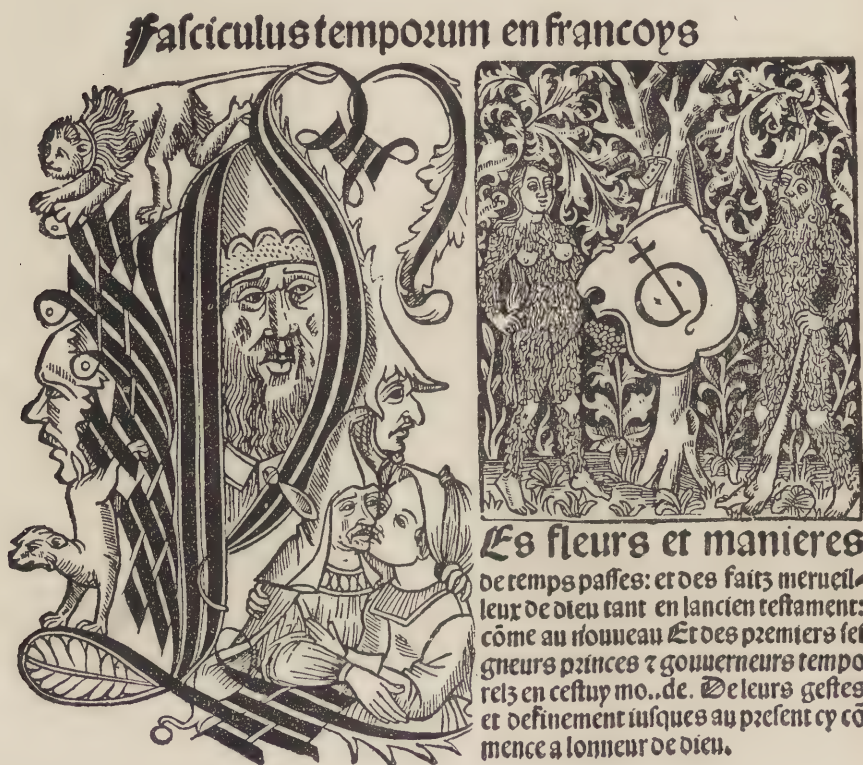 Fasciculus temporum en francoys
L
Es fleurs et manieres
de temps passes: et des faitz merueil-
leux de dieu tant en lancien testament:
cõme au nouueau Et des premiers sei
gneurs princes ⁊ gouuerneurs tempo
relz en cestuy mo..de. De leurs gestes
et definement iusques au present cy cõ
mence a lonneur de dieu.